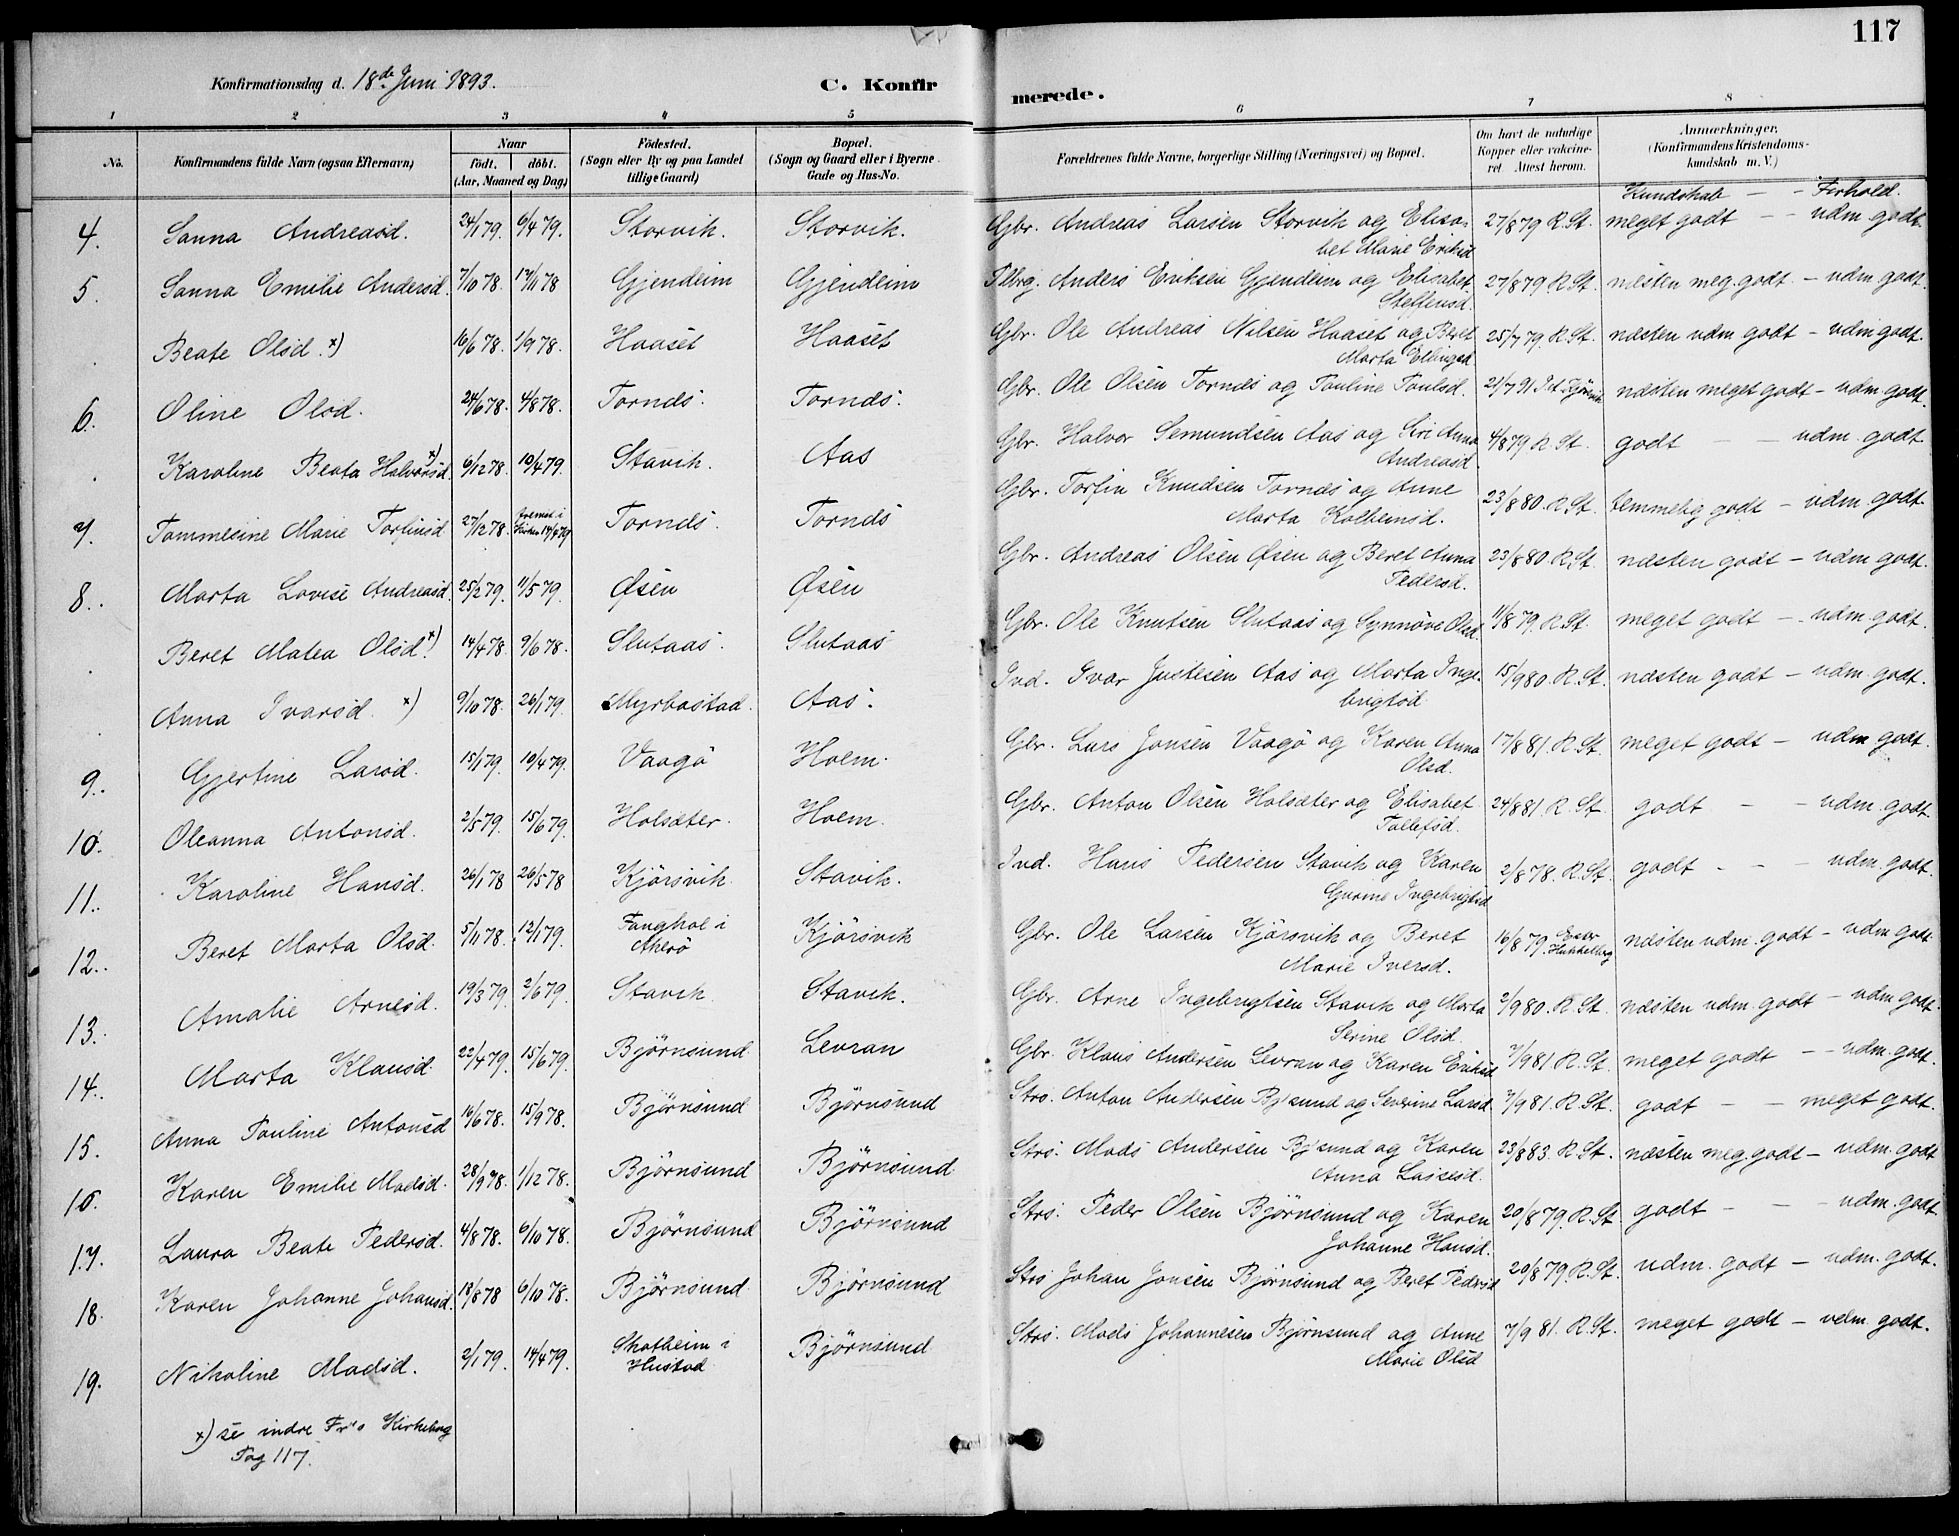 117
Konfirmationsdag d. 18de Juni 1893.
C. Konfir
merede.
1 2 3 4 5 6 7 8
No.
Konfirmandens fulde Navn (ogsaa Efternavn)
Naar
født. døbt.
(Aar, Maaned og Dag)
Fødested.
(Sogn eller By og paa Landet
tillige Gaard)
Bopæl.
(Sogn og Gaard eller i Byerne
Gade og Hus-No.
Forældrenes fulde Navne, borgerlige Stilling (Næringsvei) og Bopæl.
Om havt de naturlige
Kopper eller vakcine-
ret Attest herom.
Anmærkninger.
(Konfirmandens Kristendoms-
kundskab m. V.)
Kundskab — - Forhold.
4. Sanna Andreasd. 24/1 79. 6/4 79. Storvik. Storvik. Gbr. Andreas Larsen Storvik og Elisa-
bet Marie Eriksd 27/8 79 R. St. meget godt - - udm. godt.
5. Sanna Emilie Andersd. 7/10 78. 17/11 78 Gjendeim Gjendeim Anders Eriksen Gjendeim og Elisabet
Steffensd. 27/8 79 R. St. næsten meg. godt - udm. godt.
Beate Olsd. x) 16/6 78. 1/9 78. Haaset Haaset Gbr. Ole Andreas Nilsen Haaset og Beret
Marta 25/7 79. R. St. næsten udm. godt - udm godt.
6. Oline Olsd. 24/6 78. 4/8 78. Tornes. Tornes. Gbr. Ole Olsen Tornes og Pauline Paulsd. 21/7 91 næsten meget godt - udm. godt.
Karoline Beata Halvorsd. x) 6/12 78. 10/4 79. Stavik. Aas Gbr. Halvor Semundsen Aas og Siri Anna
Andreasd. 4/8 79 R. St. godt - - udm. godt
7. Tommesine Marie Torfinsd 27/12 78. fremst. i
Kirken 14/4 79 Tornes. Tornes Gbr. Torfin Knudsen Tornes og Anne
Marta Kolbensd. 23/8 80. R. St. temmelig godt - udm. godt.
8. Marta Lovise Andreasd. 25/2 79. 11/5 79. Øsen Øsen Gbr. Andreas Olsen Øsen og Beret Anna
Pedersd. 23/8 80 R. St. næsten godt - udm godt.
Beret Matea Olsd. x) 14/4 78. 9/6 78. Slutaas. Slutaas Gbr. Ole Knutsen Slutaas og Synnøve Olsd. 11/8 79. R. St. meget godt - udm. godt.
Anna Ivarsd. x) 9/10 78. 26/1 79. Myrbostad. Aas. Ind. Ivar Justesen Aas og Marta Inge-
brigtsd. 15/9 80. R. St. næsten godt - udm. godt.
9. Gjertine Larsd. 15/1 79. 10/4 79. Vaagø Holm. Gbr. Lars Jonsen Vaagø og Karen Anna
Olsd. 17/8 81. R. St. meget godt - udm. godt.
10. Oleanna Antonsd. 2/5 79. 15/6 79. Holsæter. Holm. Gbr. Anton Olsen Holsæter og Elisabet
Tollefsd. 24/8 81. R. St. godt - - udm. godt.
11. Karoline Hansd. 26/1 78 26/5 78 Kjørsvik Stavik. Ind. Hans Pedersen Stavik og Karen
Gurine Ingebrigtsd 2/8 78. R. St. godt - - udm. godt.
12. Beret Marta Olsd. 5/11 78. 12/1 79. Fanghol i
Akerø Kjørsvik Gbr. Ole Larsen Kjørsvik og Beret
Marie Iversd. 16/8 79. næsten udm. godt - udm godt
13. Amalie Arnesd. 19/3 79. 2/6 79. Stavik Stavik. Gbr. Arne Ingebrigtsen Stavik og Marta
Serine Olsd. 2/9 80. R. St. næsten udm. godt - udm godt.
14. Marta Klausd. 22/4 79. 15/6 79. Bjørnsund Levran Gbr. Klaus Andersen Levran og Karen Eriksd 7/9 81. R. St. meget godt - - udm. godt.
15. Anna Pauline Antonsd 16/6 78. 15/9 78. Bjørnsund Bjørnsund Strs. Anton Andersen Bj'sund og Severine Larsd. 7/9 81. R. St. godt - - meget godt.
16. Karen Emilie Madsd. 28/9 78. 1/12 78. Bjørnsund Bjørnsund Strs. Mads Andersen Bj'sund og Karen
Anna Lassesd. 23/8 83. R. St. næsten meg. godt - udm. godt
17. Laura Beate Pedersd. 4/8 78. 6/10 78. Bjørnsund Bjørnsund Strs. Peder Olsen Bjørnsund og Karen
Johanne Hansd. 20/8 79. R. St godt - - udm. godt
18. Karen Johanne Johansd. 18/8 78 6/10 78. Bjørnsund Bjørnsund Strs Johan Jonsen Bjørnsund og Beret Pedersd 20/8 79. R. St. udm. godt - udm. godt.
19. Nikoline Madsd. 2/1 79. 14/4 79. Skotheim i
Hustad Bjørnsund Strs. Mads Johannesen Bjørnsund og Anne
Marie Olsd 7/9 81. R. St. meget godt - udm. godt.
x) se indre Fr's Kirkebog
Pag 117.